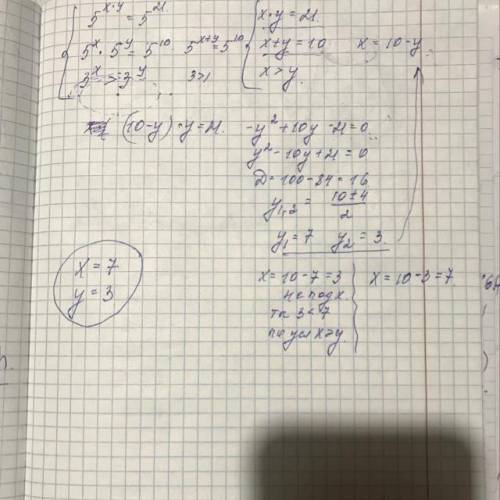 5^{x·y} = 5^{21} x·y = 21.
5^x · 5^y = 5^{10} 5^{x+y} = 5^{10} x+y = 10 x = 10-y
3^x > 3^y 3>1 x>y.
(10-y)·y = 21. -y² + 10y - 21 = 0
y² - 10y + 21 = 0
D = 100 - 84 = 16
y_{1,2} = \frac{10±4}{2}
y₁ = 7 y₂ = 3.
x = 7
y = 3
x = 10 - 7 = 3
не подх.
тк 3 < 7
по усл x > y.
x = 10 - 3 = 7.